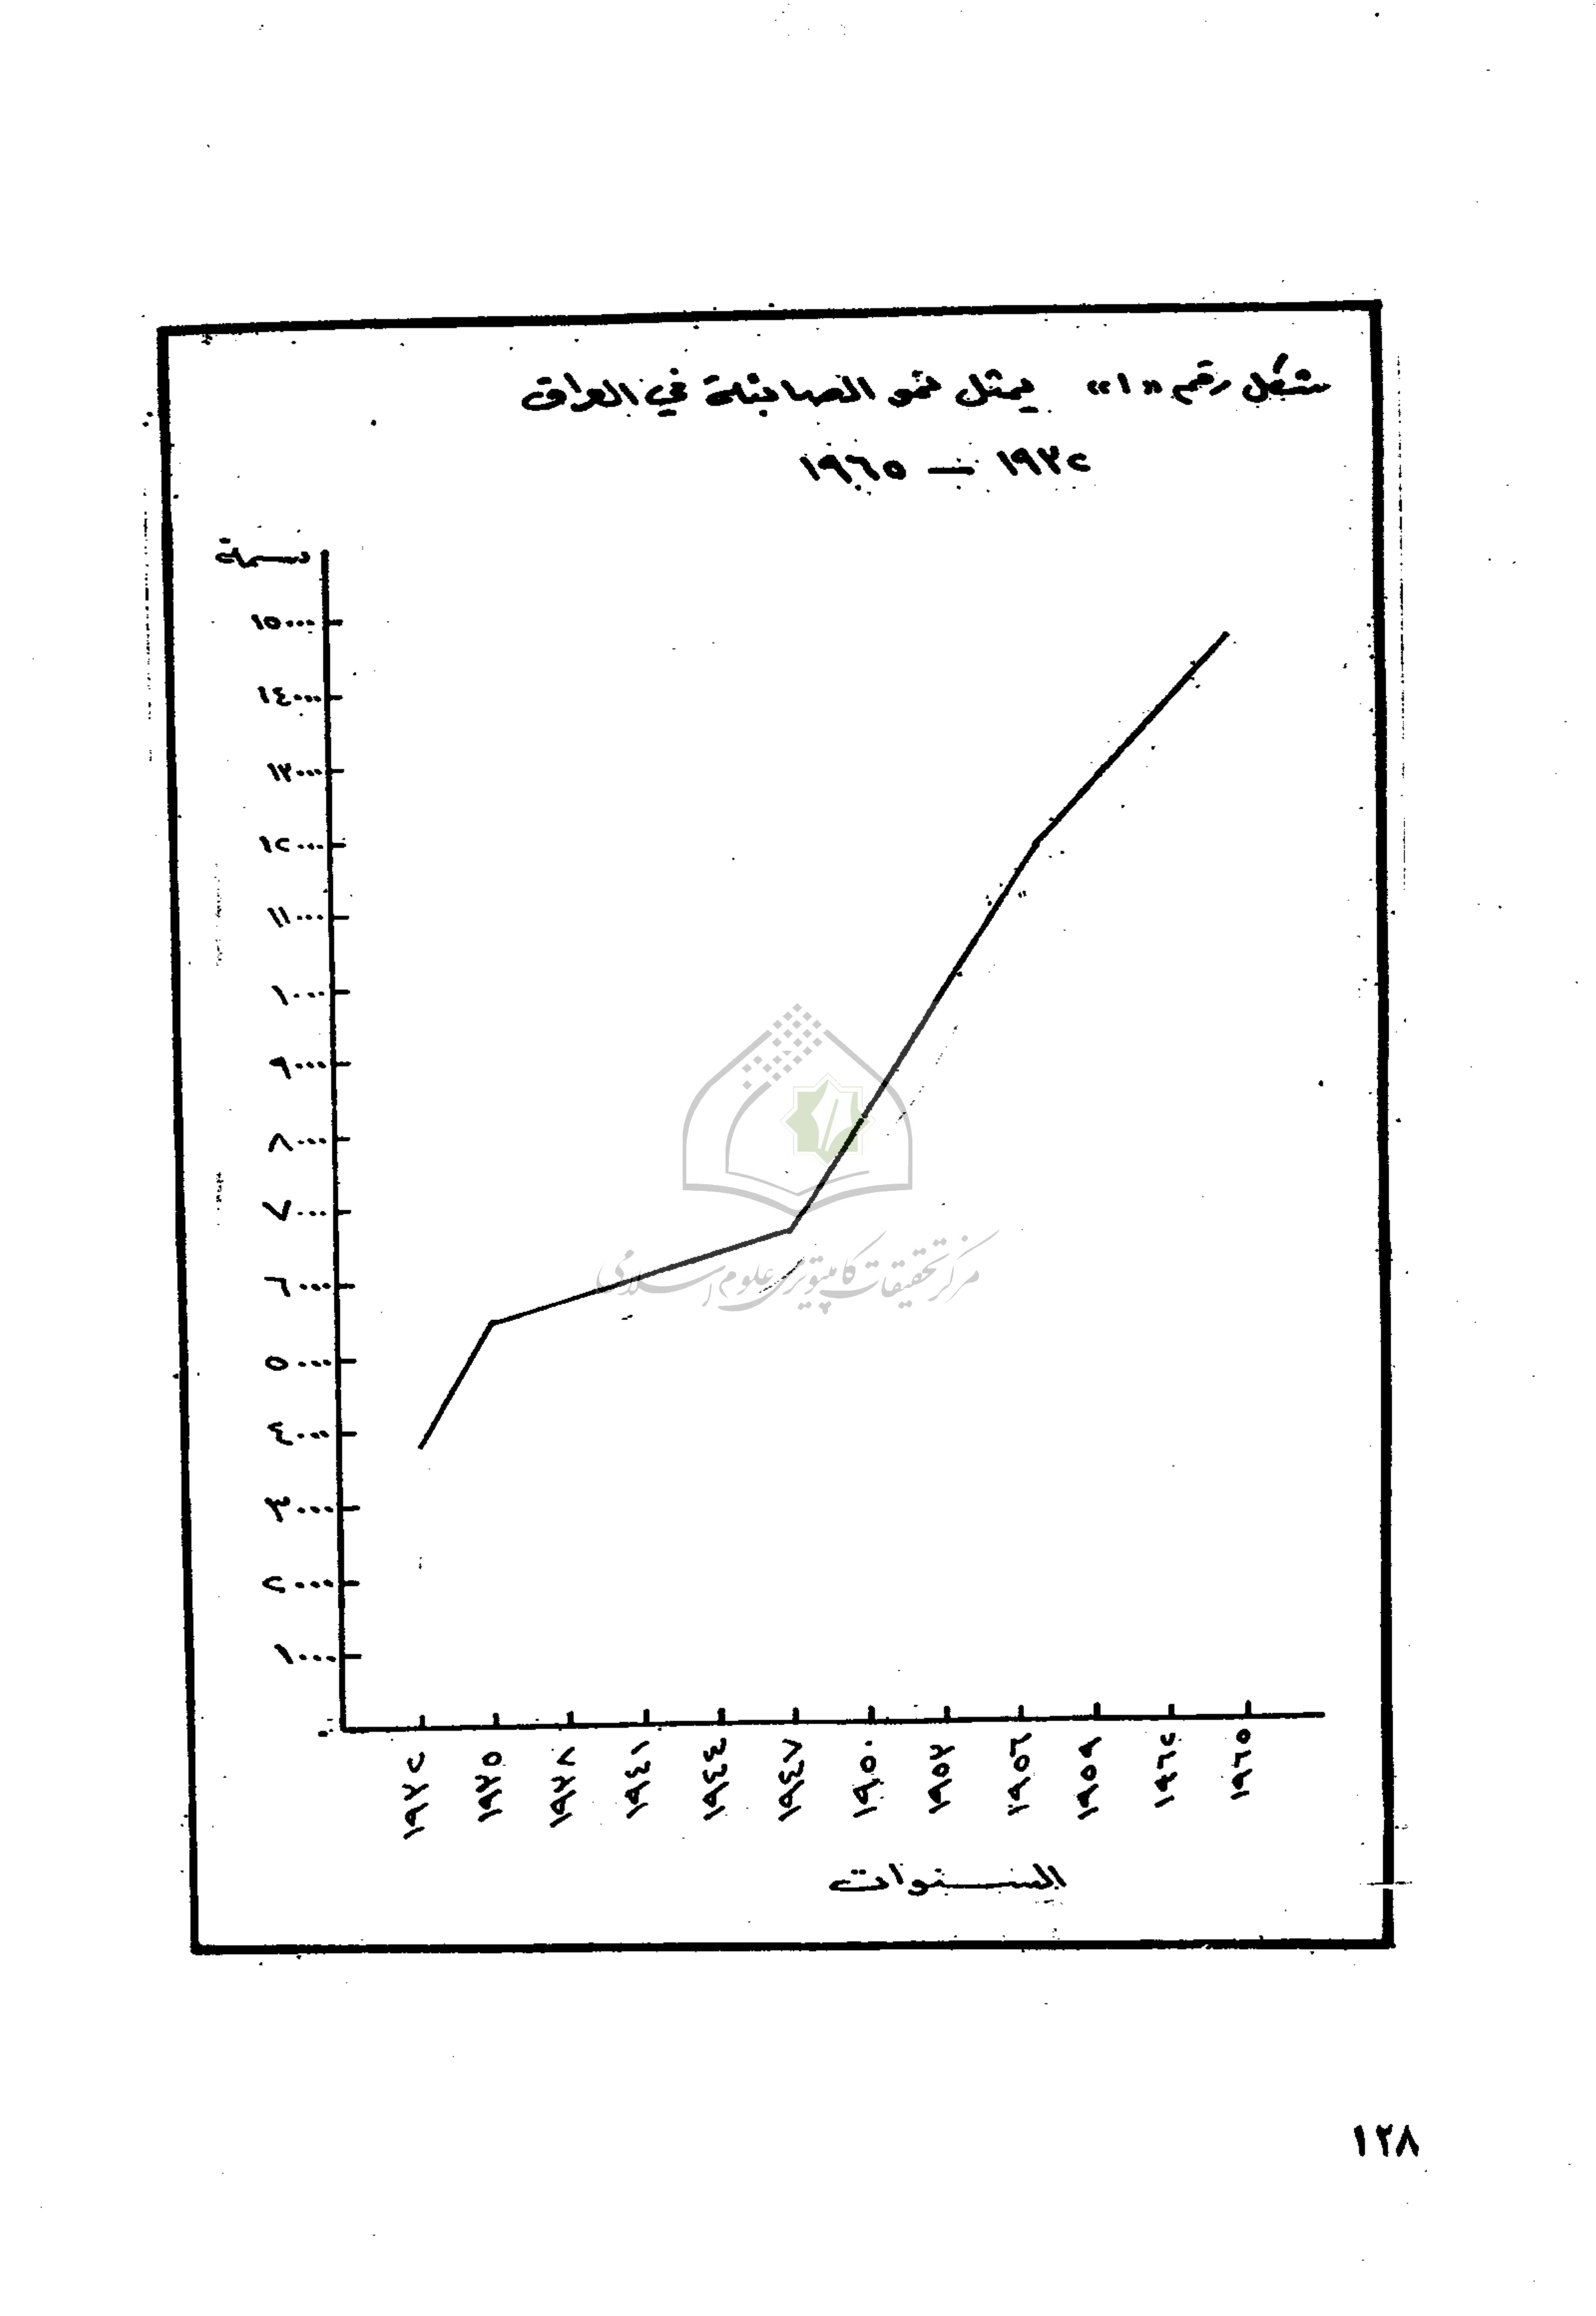 شكل رقم «١» يمثل نمو الصابئة في العراق
١٩٣٢ — ١٩٦٥
نسمة
١٥٠٠٠
١٤٠٠٠
١٣٠٠٠
١٢٠٠٠
١١٠٠٠
١٠٠٠٠
٩٠٠٠
٨٠٠٠
٧٠٠٠
٦٠٠٠
٥٠٠٠
٤٠٠٠
٣٠٠٠
٢٠٠٠
١٠٠٠
١٩٣٢ ١٩٣٥ ١٩٣٨ ١٩٤١ ١٩٤٤ ١٩٤٧ ١٩٥٠ ١٩٥٣ ١٩٥٦ ١٩٥٩ ١٩٦٢ ١٩٦٥
السنوات
مرکز تحقیقات کامپیوتری علوم اسلامی
١٢٨